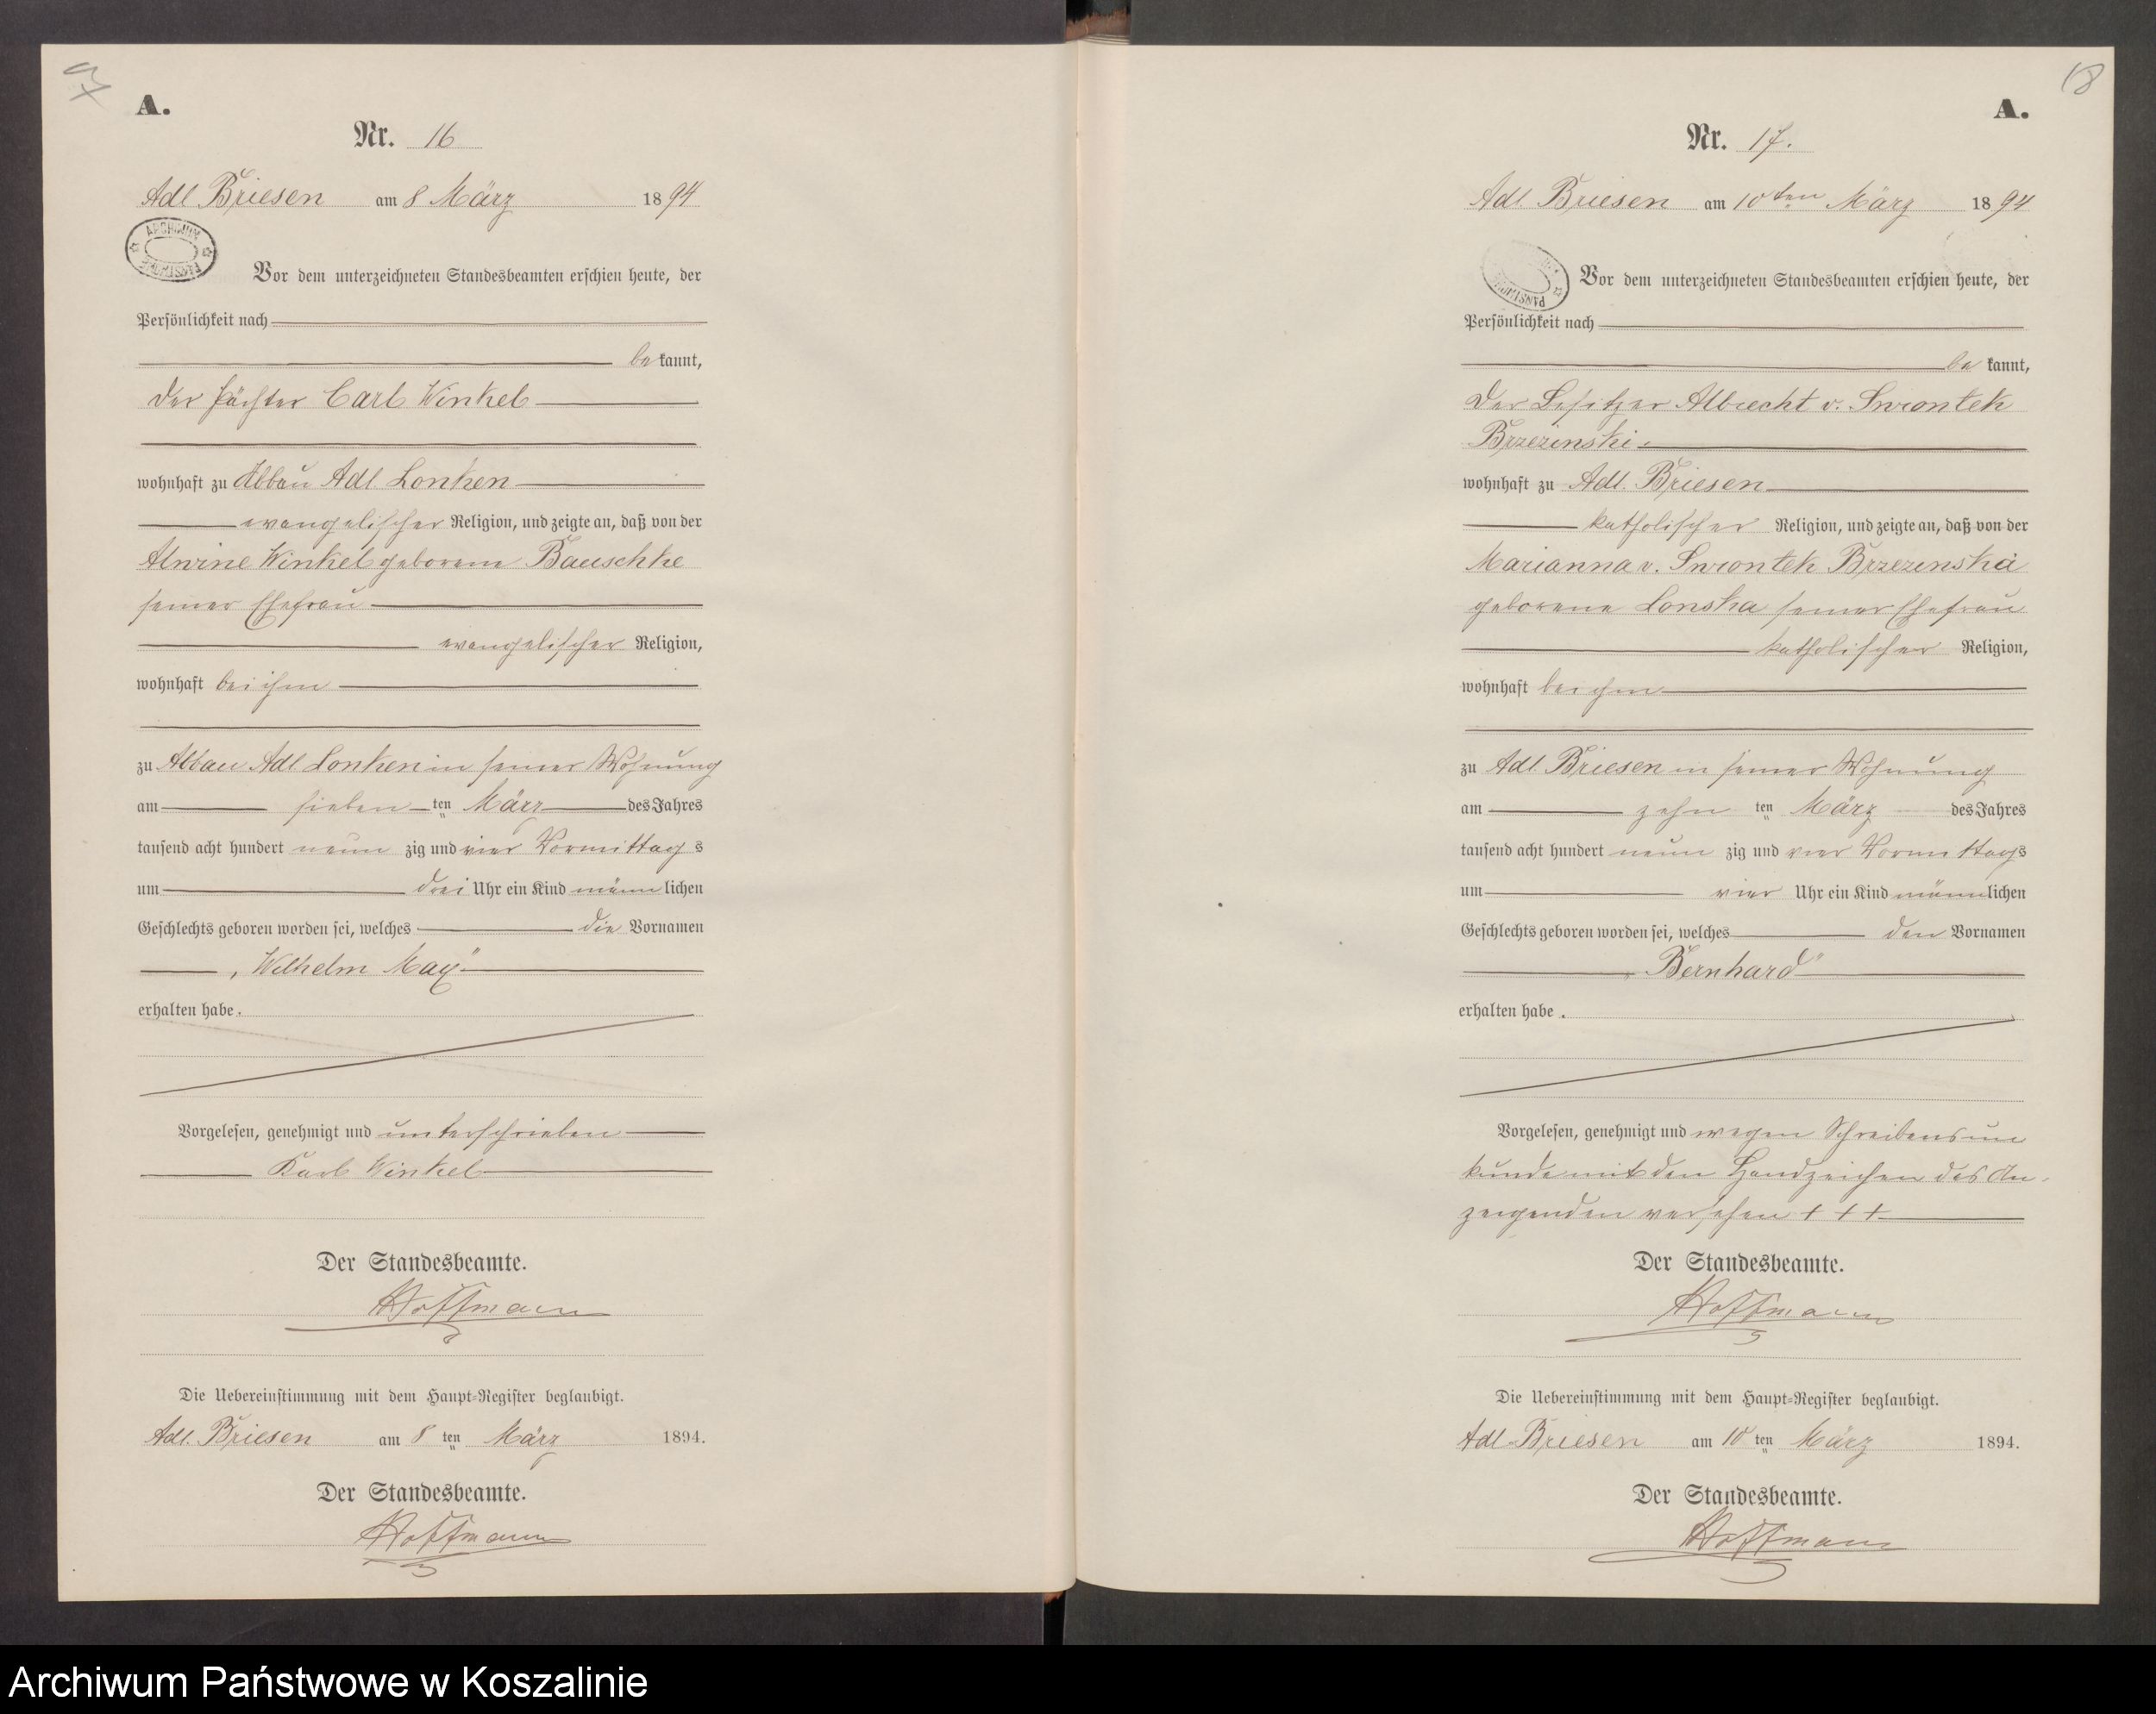 A.
Nr. 16
Adl. Briesen am 8 März 1894
ARCHIWUM PAŃSTWOWE
Vor dem unterzeichneten Standesbeamten erschien heute, der
Persönlichkeit nach
be kannt,
der Pächter Carl Winkel
wohnhaft zu Abbau Adl. Lonken
evangelischer Religion, und zeigte an, daß von der
Alwine Winkel geborene Bauschke
seiner Ehefrau
evangelischer Religion,
wohnhaft bei ihm
zu Abbau Adl. Lonken in seiner Wohnung
am sieben ten März des Jahres
tausend acht hundert neun zig und vier Vormittag s
um drei Uhr ein Kind männ lichen
Geschlechts geboren worden sei, welches die Vornamen
„Wilhelm Max“
erhalten habe.
Vorgelesen, genehmigt und unterschrieben
Karl Winkel
Der Standesbeamte.
Hoffmann
Die Uebereinstimmung mit dem Haupt-Register beglaubigt.
Adl. Briesen am 8 ten März 1894.
Der Standesbeamte.
Hoffmann
18
A.
Nr. 17.
Adl. Briesen am 10ten März 1894
Vor dem unterzeichneten Standesbeamten erschien heute, der
Persönlichkeit nach
be kannt,
der Besitzer Albrecht v. Swiontek
Brzezinski
wohnhaft zu Adl. Briesen
katholischer Religion, und zeigte an, daß von der
Marianna v. Swiontek Brzezinska
geborene Lonska seiner Ehefrau
katholischer Religion,
wohnhaft bei ihm
zu Adl. Briesen in seiner Wohnung
am zehn ten März des Jahres
tausend acht hundert neun zig und vier Vormittags
um vier Uhr ein Kind männlichen
Geschlechts geboren worden sei, welches den Vornamen
„Bernhard“
erhalten habe.
Vorgelesen, genehmigt und wegen Schreibensun
kunde mit den Handzeichen des An-
zeigenden versehen + + +
Der Standesbeamte.
Hoffmann
Die Uebereinstimmung mit dem Haupt-Register beglaubigt.
Adl. Briesen am 10 ten März 1894.
Der Standesbeamte.
Hoffmann
Archiwum Państwowe w Koszalinie